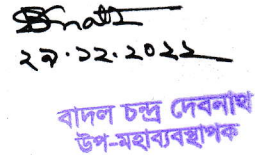 ২৯.১২.২০২২
বাদল চন্দ্র দেবনাথ
উপ-মহাব্যবস্থাপক